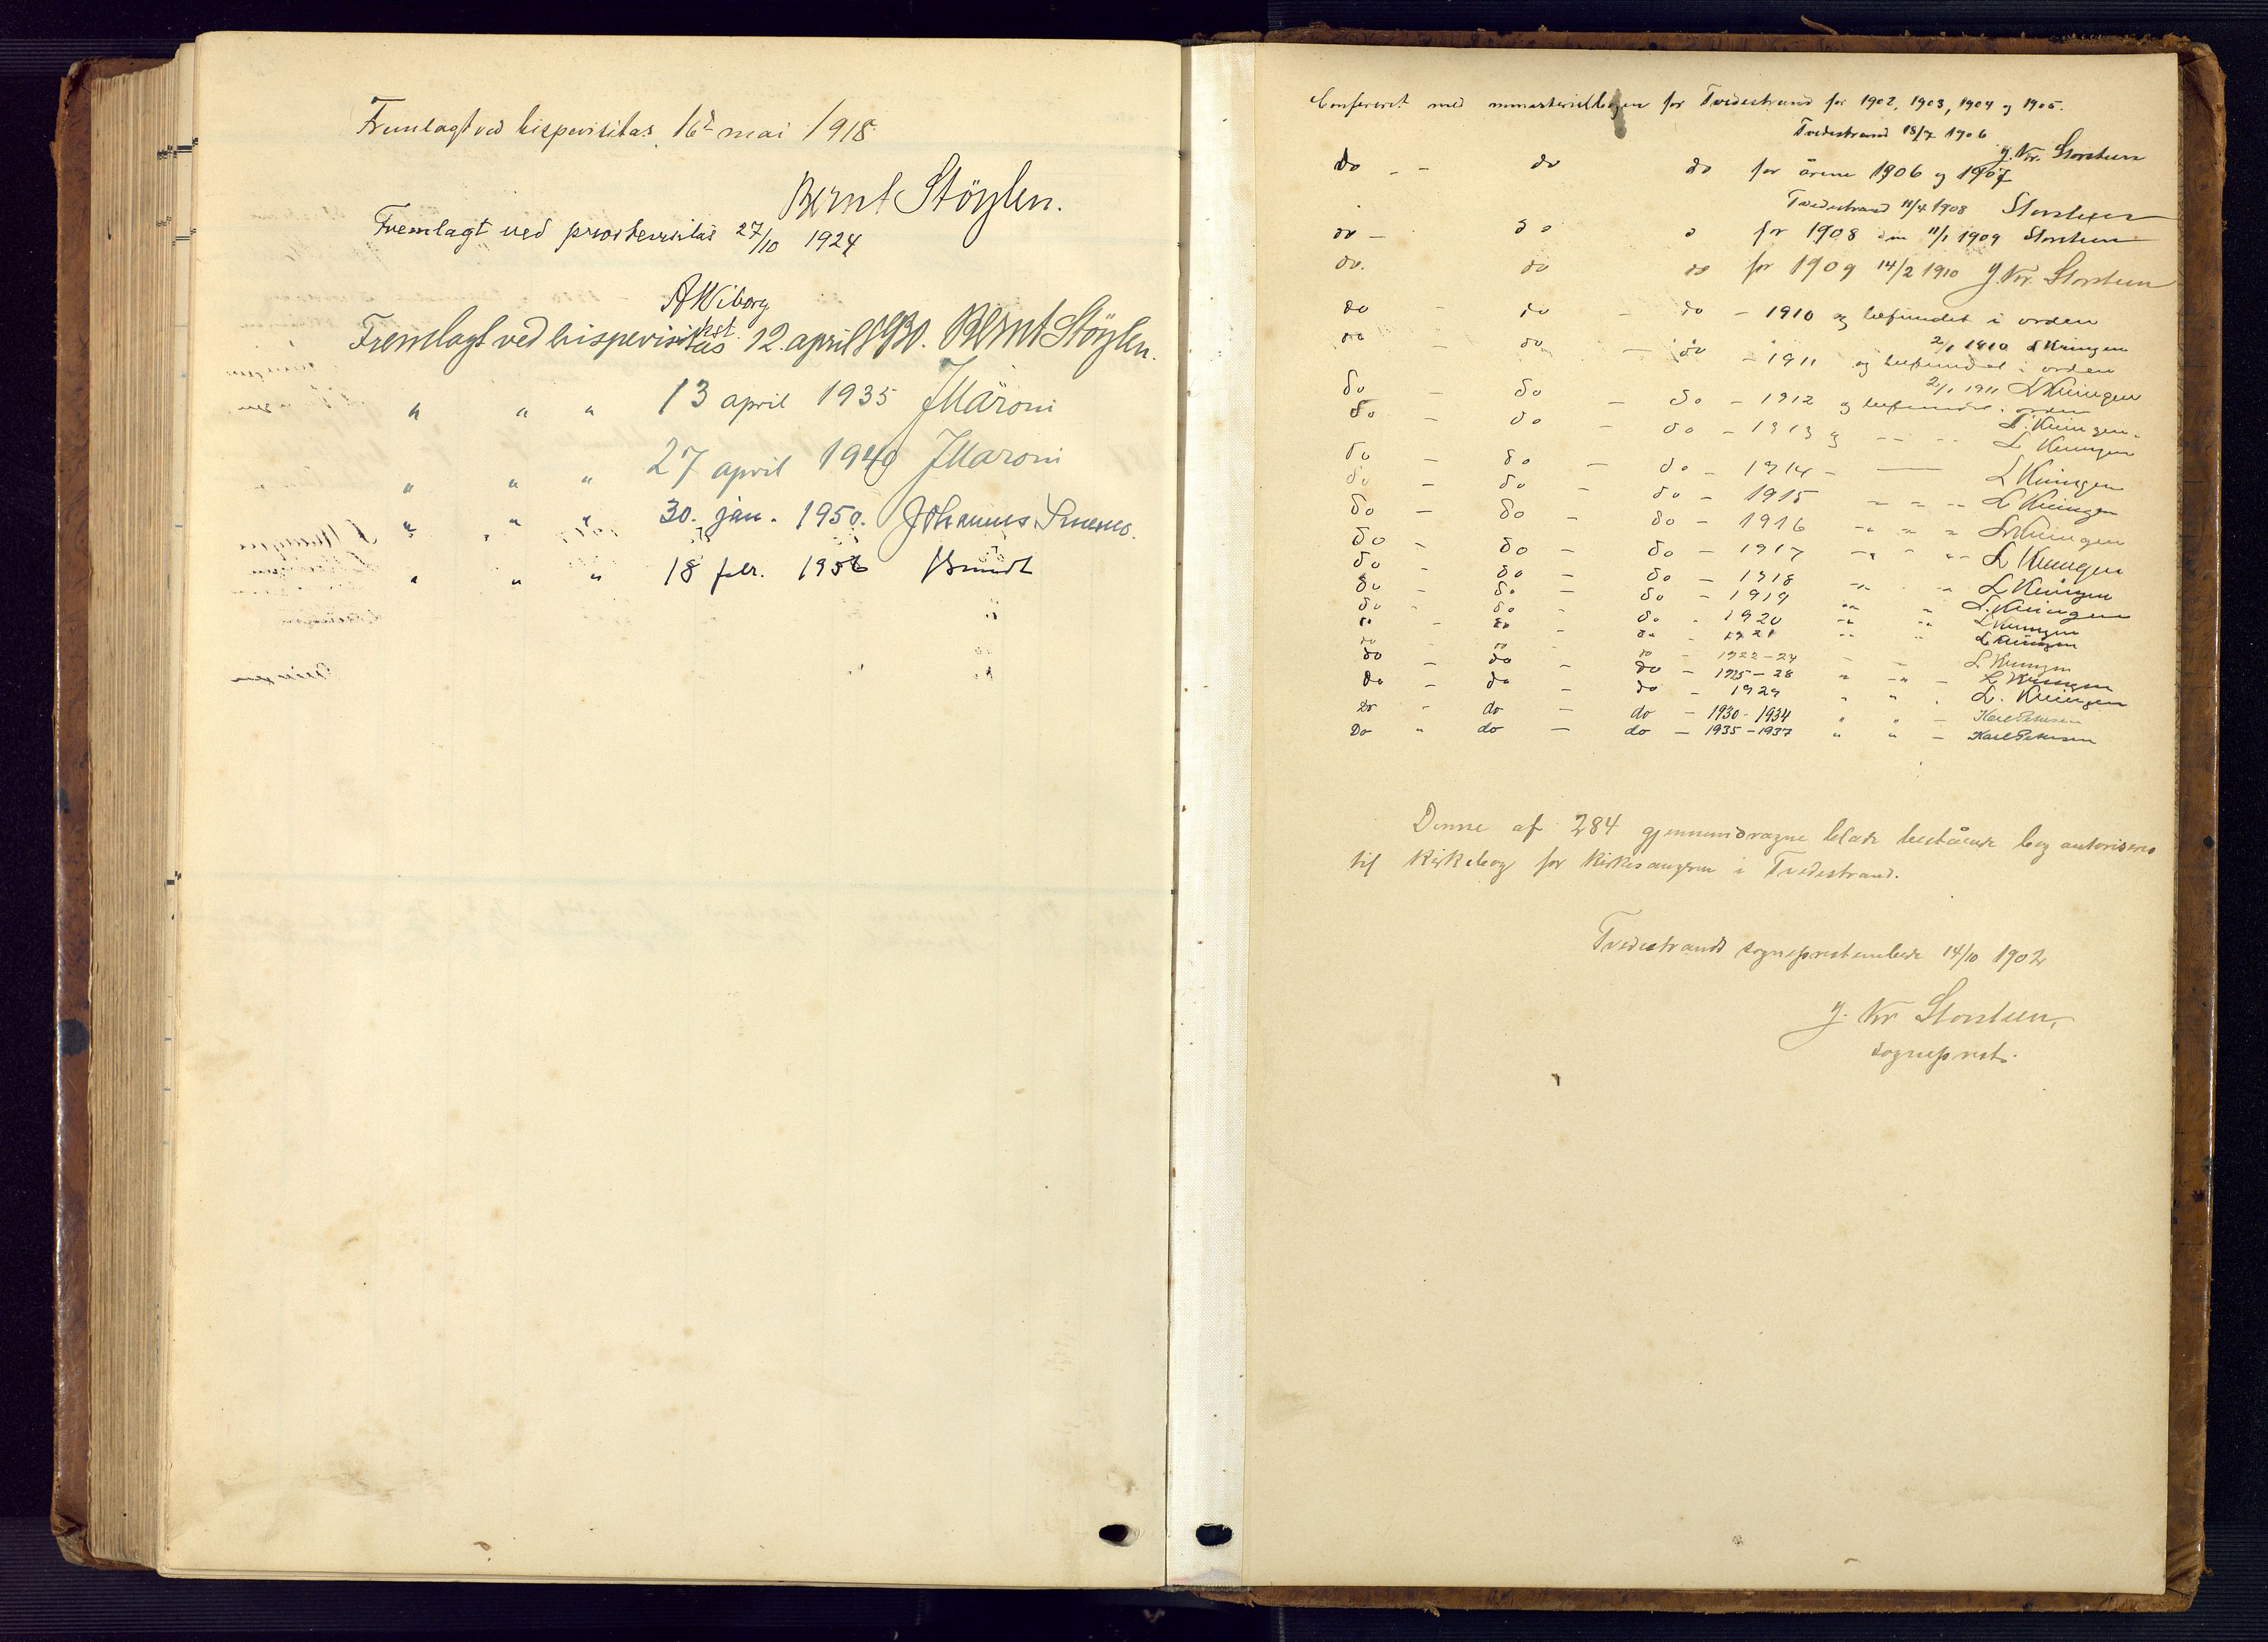 Fremlagt ved bispevisitas 16de mai 1918.
Bernt Stöylen.
Fremlagt ved prostevisitas 27/10 1924
AWiborg
kst.
Fremlagt ved bispevisitas 12. april 1930. Bernt Stöylen.
" " " 13 april 1935 JMaroni
" " " 27 april 1940 JMaroni
" " " 30. jan. 1950. Johannes Smemo.
" " " 18 febr. 1956
Confereret med ministerialbogen for Tvedestrand for 1902, 1903, 1904 og 1905.
Tvedestrand 18/7 1906
J. Kr. Storsteen
do - - do do for årene 1906 og 1907
Tvedestrand 11/4 1908 Storsteen
do - do do for 1908 den 11/1 1909 Storsteen
do. do do for 1909 14/2 1910 J. Kr. Storsteen
do - do - do - 1910 og befundet i orden
2/1 1910 L Kringen
do - do - do - 1911 og befundet i orden
2/1 1911 L Kringen
do - do - do - 1912 og befundet i orden
L. Kringen.
do - do - do - 1913 og - - - - L Kringen
do - do - do - 1914 - — L Kringen
do - do - do - 1915 " " " L Kringen
do - do - do - 1916 " " " L Kringen
do - do - do - 1917 " " " L Kringen
do - do - do - 1918 " " L Kringen
do - do - do - 1919 " " L. Kringen
do - do - do - 1920 " " L Kringen
do - do - do - 1921 " " L Kringen
do do do - 1922-24 - - L Kringen
do - do - do - 1925-28 " " - L Kringen
do - do - do - 1929 " " . L. Kringen
Do - do - do - 1930-1934 " " - Karl Petersen
Do " do - do - 1935-1937 " " - Karl Petersen
Denne af 284 gjennemdragne blade bestående bog autoriseres
til Kirkebog for Kirkesangeren i Tvedestrand.
Tvedestrands sogneprestembede 14/10 1902
J. Kr Storsteen,
sogneprest.